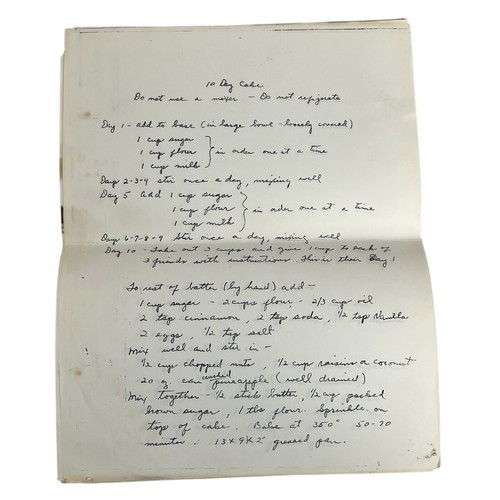 10 Day Cake
Do not use a mixer - Do not refigerate
Day 1 - add to base (in large bowl - loosely covered)
1 cup sugar
1 cup flour } in order one at a time
1 cup milk
Days 2-3-4 stir once a day, mixing well
Day 5 Add 1 cup sugar
1 cup flour } in order one at a time
1 cup milk
Days 6-7-8-9 Stir once a day, mixing well
Day 10 - Take out 3 cups and give 1 cup to each of
3 friends with instructions. This is their Day 1
To rest of batter (by hand) add -
1 cup sugar - 2 cups flour - 2/3 cup oil
2 tsp cinnamon, 2 tsp soda, 1/2 tsp Vanilla
2 eggs, 1/2 tsp salt
Mix well and stir in -
1/2 cup chopped nuts, 1/2 cup raisins or coconut
20 oz. can crushed pineapple (well drained)
Mix together - 1/2 stick butter, 1/2 cup packed
brown sugar, 1 tbs flour. Sprinkle on
top of cake. Bake at 350° 50-70
minutes. 13 x 9 x 2" greased pan.